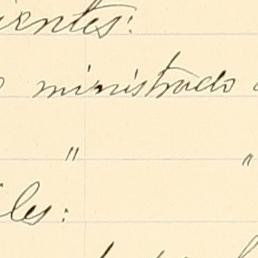 ientes:
ministrado
" "
les: